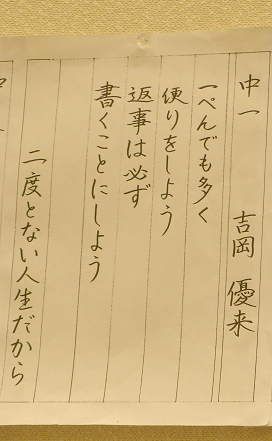 中一 吉岡 優来
一ぺんでも多く
便りをしよう
返事は必ず
書くことにしよう
二度とない人生だから